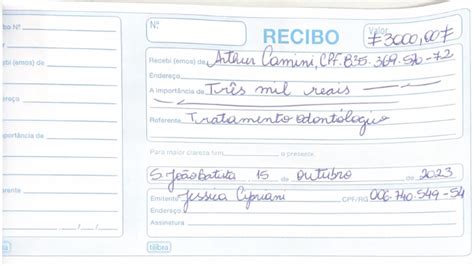 bo Nº
Nº RECIBO Valor #3000,00#
bi (emos) de
Recebi (emos) de Arthur Camini, CPF. 835.369.520-72
ereço
Endereço
A importância de Três mil reais
portância de
Referente Tratamento odontológico
rente
Para maior clareza firm o presente
S. João Batista 15 de Outubro de 2023
Emitente Jessica Cipriani CPF/RG 006.740.549-54
Endereço
Assinatura
tilibra